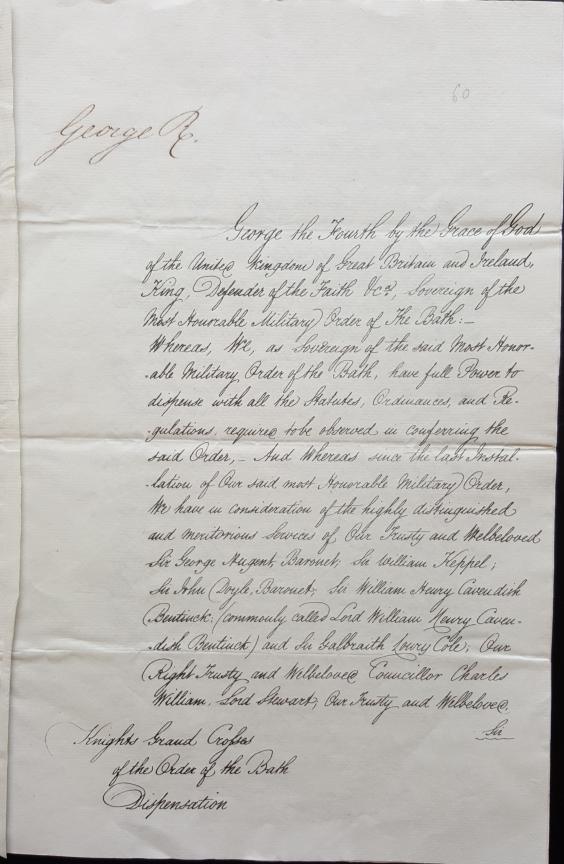 60
George R.
George the Fourth by the Grace of God
of the United Kingdom of Great Britain and Ireland,
King, Defender of the Faith &ca, Sovereign of the
Most Honorable Military Order of The Bath:—
Whereas, We, as Sovereign of the said Most Honor-
able Military Order of the Bath, have full Power to
dispense with all the Statutes, Ordinances, and Re-
gulations, required to be observed in conferring the
said Order,— And Whereas since the last Instal-
lation of Our said most Honorable Military Order,
We have in consideration of the highly distinguished
and meritorious Services of Our Trusty and Welbeloved
Sir George Nugent, Baronet; Sir William Keppel;
Sir John Doyle, Baronet; Sir William Henry Cavendish
Bentinck; (commonly called Lord William Henry Caven-
dish Bentinck) and Sir Galbraith Lowry Cole; Our
Right Trusty and Welbeloved Councillor Charles
William, Lord Stewart; Our Trusty and Welbeloved,
Sir
Knights Grand Crosses
of the Order of the Bath
Dispensation